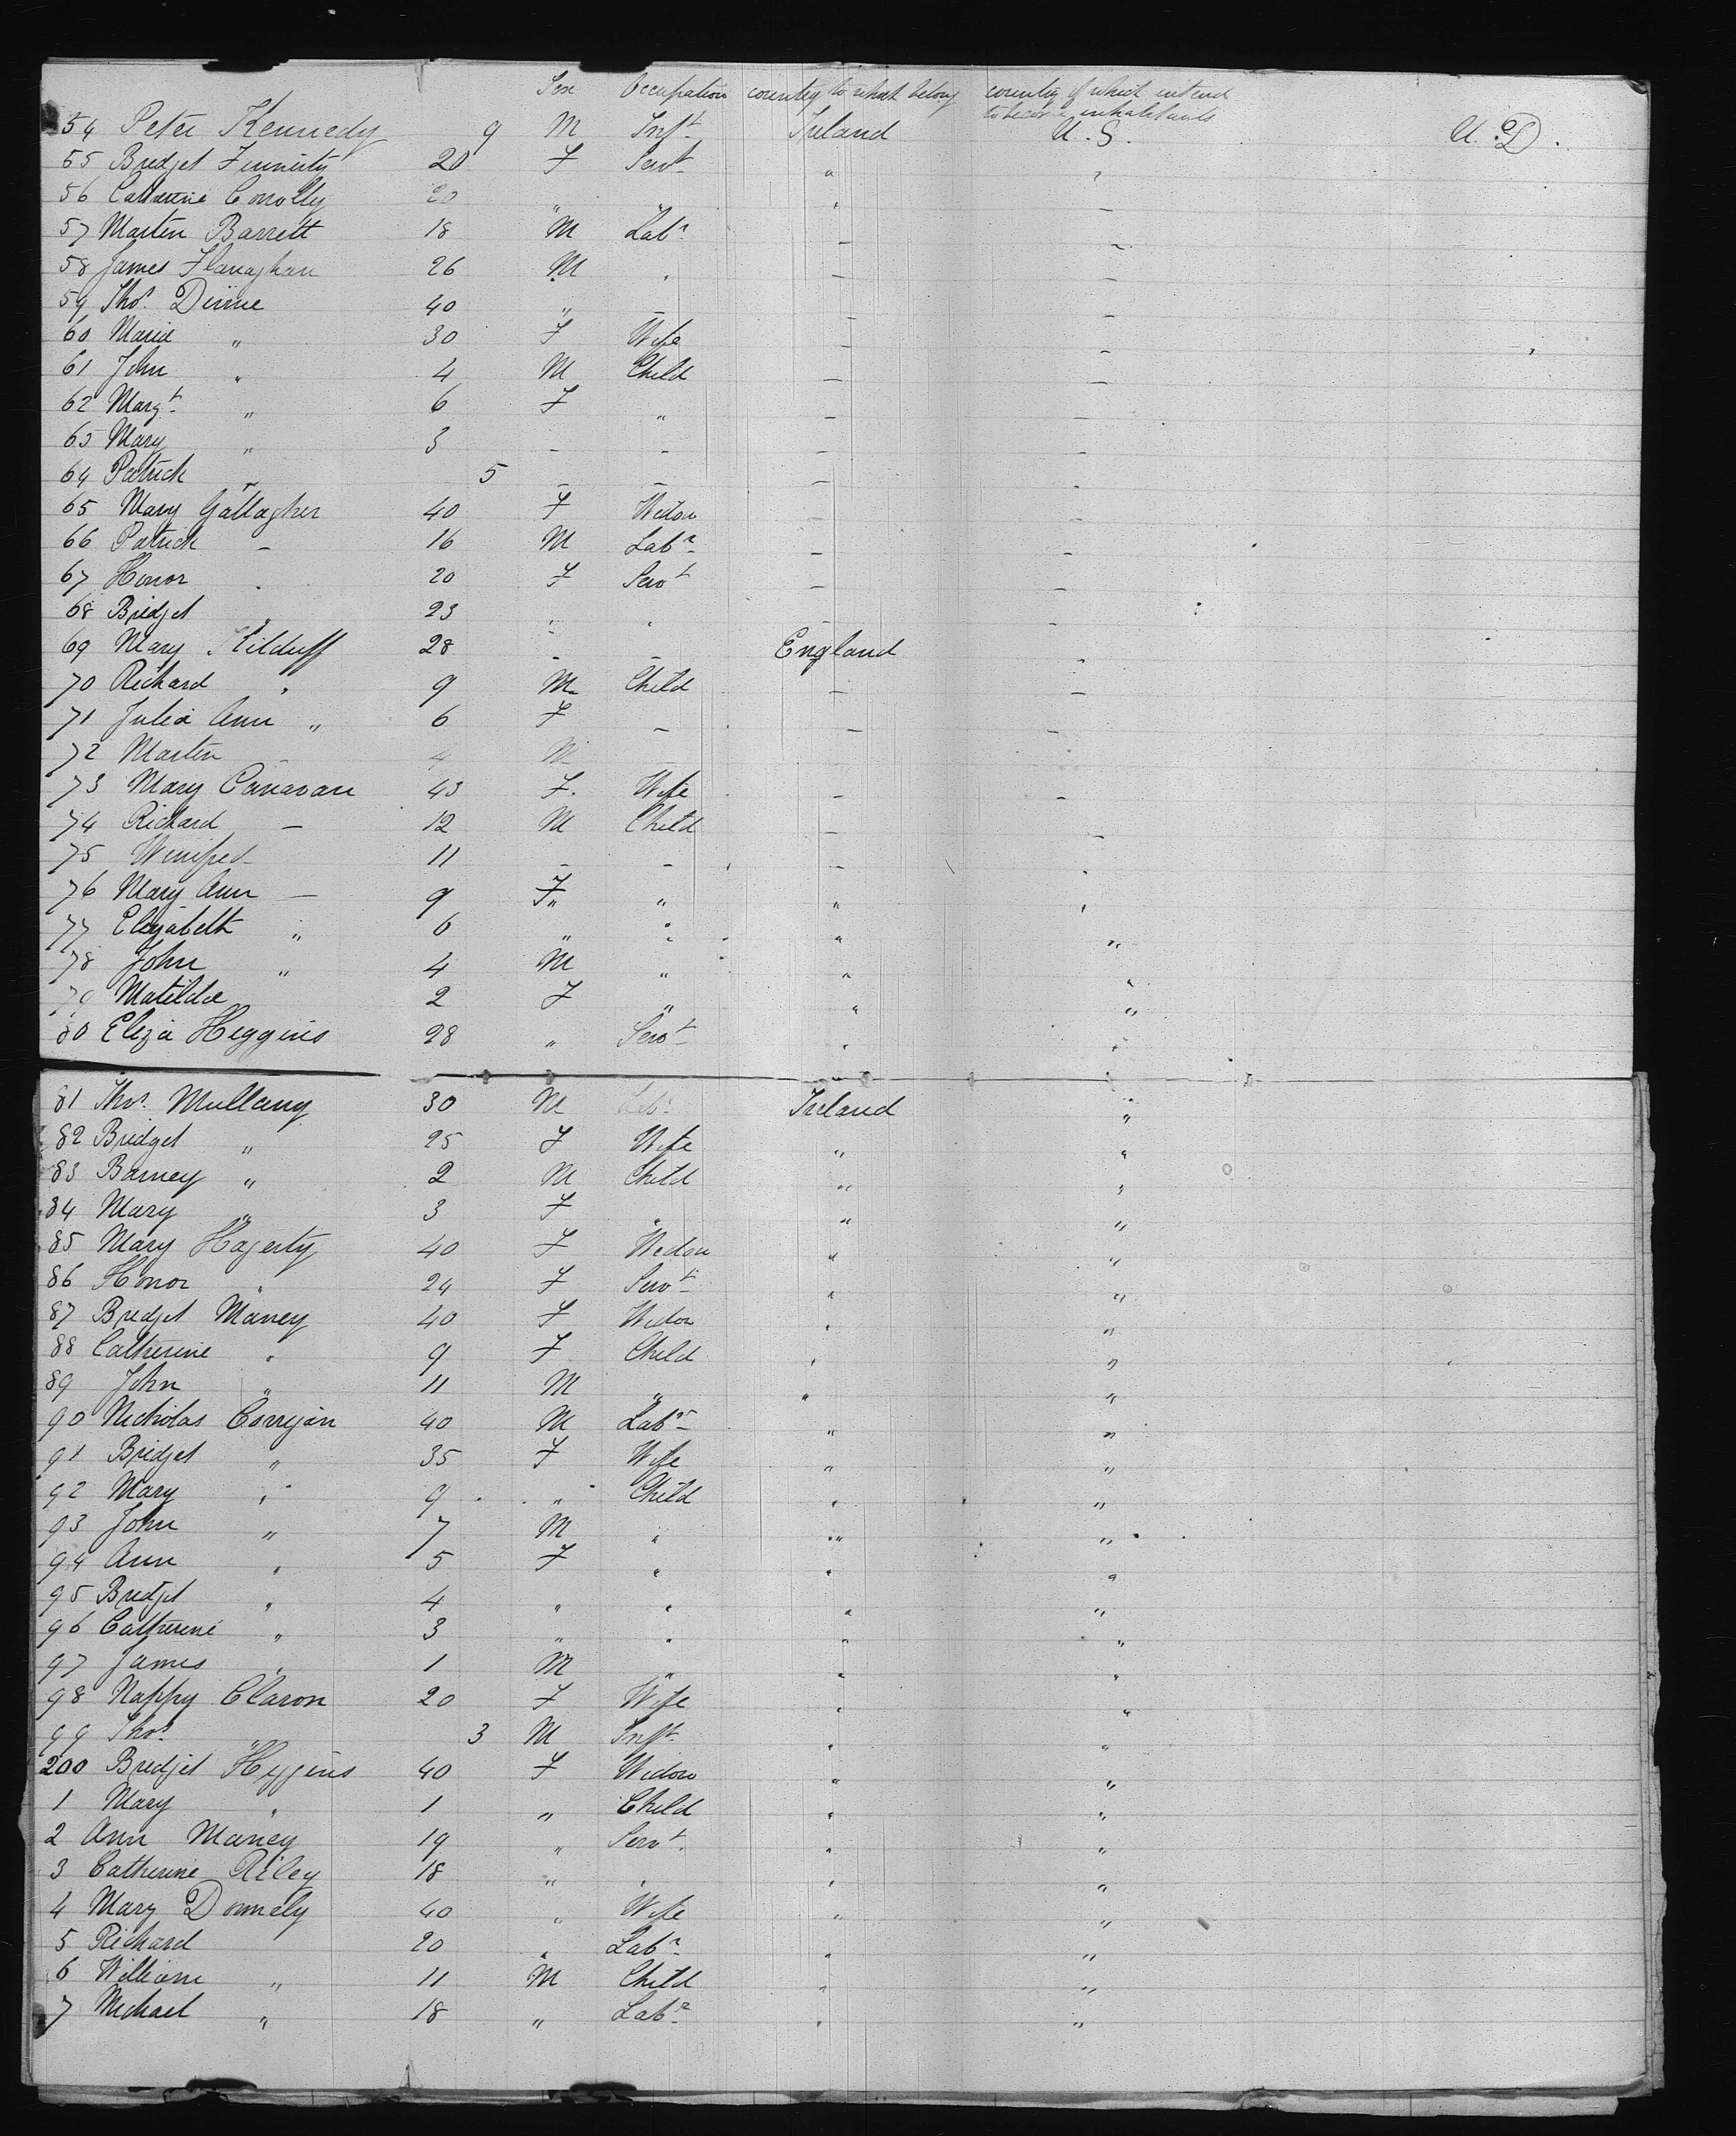 Sex Occupation country to what belong country of which intend to become inhabitants
54 Peter Kennedy 9 M Inft Ireland U.S. U.D.
55 Bredget Finnerty 20 F Servt " "
56 Catherine Conolly 20 " " " -
57 Marten Barrett 18 M Labr - "
58 James Flanaghan 26 M " - -
59 Thos. Dinne 40 " - - -
60 Maria " 30 F Wife - -
61 John " 4 M Child - -
62 Margt " 6 F " - -
63 Mary " 3 - - - -
64 Patrick " 5 - - - -
65 Mary Gallagher 40 F Widow - -
66 Patrick - 16 M Labr - -
67 Honor " 20 F Servt - -
68 Bridget " 23 " " - -
69 Mary Kilduff 28 - - England -
70 Richard " 9 M Child - -
71 Julia Ann " 6 F - - -
72 Marten - 4 M
73 Mary Canavan 43 F. Wife - -
74 Richard - 12 M Child - -
75 Winifred 11 - - - "
76 Mary Ann - 9 F " " "
77 Elizabeth " 6 " " " "
78 John " 4 M " " "
79 Matilda 2 F " " "
80 Eliza Heggins 28 " Servt " "
81 Thos. Mullany 30 M Labr Ireland "
82 Bridget " 25 F Wife " "
83 Barney " 2 M Child " "
84 Mary " 3 F " " "
85 Mary Hagerty 40 F Widow " "
86 Honor " 24 F Servt " "
87 Bredget Maney 40 F Widow " "
88 Catherine " 9 F Child " "
89 John " 11 M " " "
90 Nicholas Corrigan 40 M Labr " "
91 Bridget " 35 F Wife " "
92 Mary " 9 " Child " "
93 John " 7 M " " "
94 Ann " 5 F " " "
95 Bredget " 4 " " " "
96 Catherine " 3 " " " "
97 James " 1 M " " "
98 Nappy Claron 20 F Wife " "
99 Thos. " 3 M Inft " "
200 Bredget Heggins 40 F Widow " "
1 Mary " 1 " Child " "
2 Ann Maney 19 " Servt " "
3 Catherine Riley 18 " " " "
4 Mary Donnely 40 " Wife " "
5 Richard 20 " Labr " "
6 William " 11 M Child " "
7 Michael " 18 " Labr " "